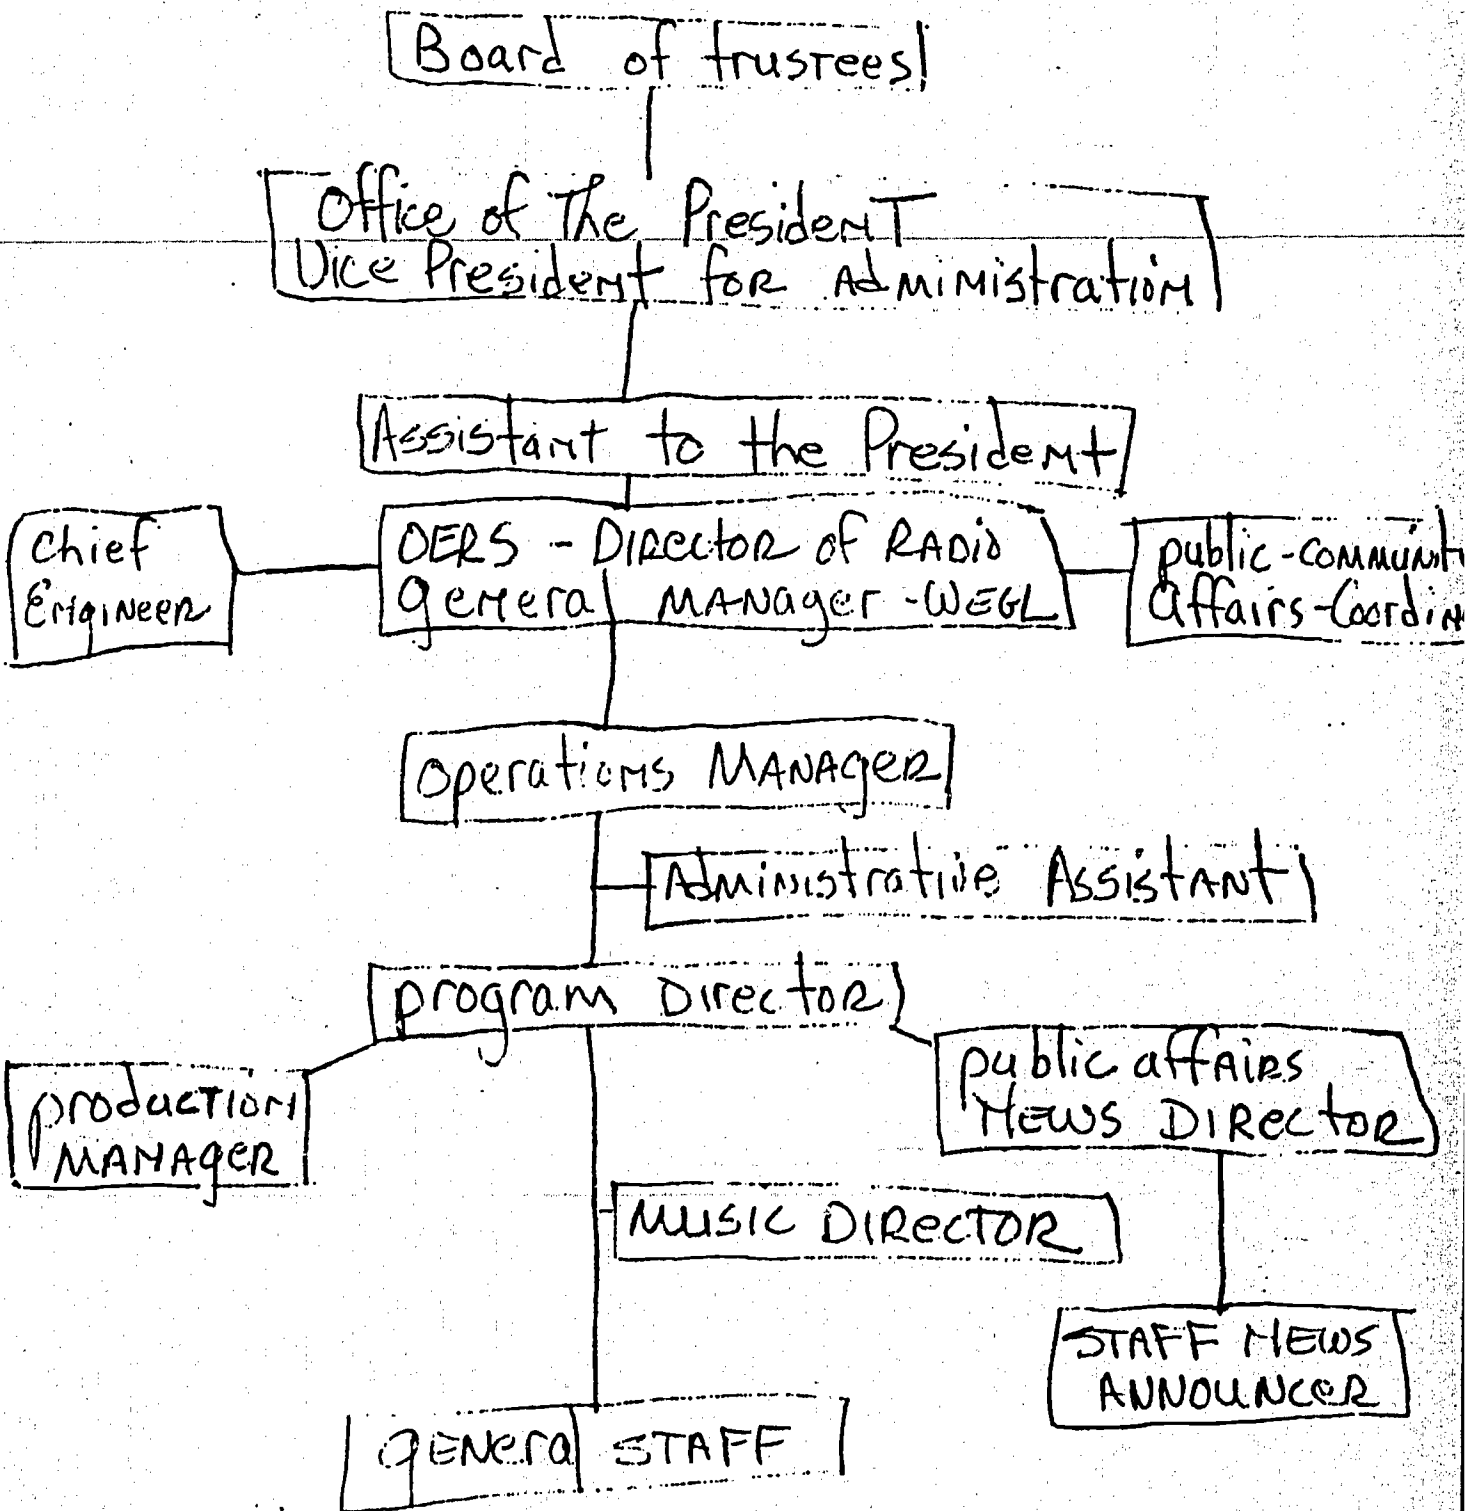 Board of trustees
Office of The President
Vice President for Administration
Assistant to the President
Chief
Engineer
OERS - Director of Radio
general Manager - WEGL
public - communit
affairs - Coordin
operations Manager
Administrative Assistant
program Director
production
Manager
public affairs
News Director
Music Director
Staff News
Announcer
general Staff